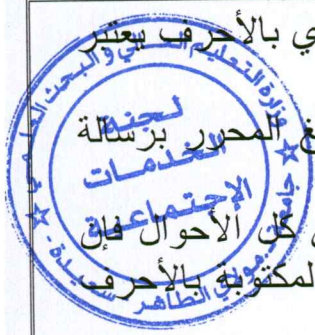 ي بالأحرف يعتبر
غ المحرر برسالة
كل الأحوال فإن
لمكتوبة بالأحرف
وزارة التعليم العالي والبحث العلمي
لجنة
الخدمات
الإجتماعية
جامعة د. مولاي الطاهر سعيدة